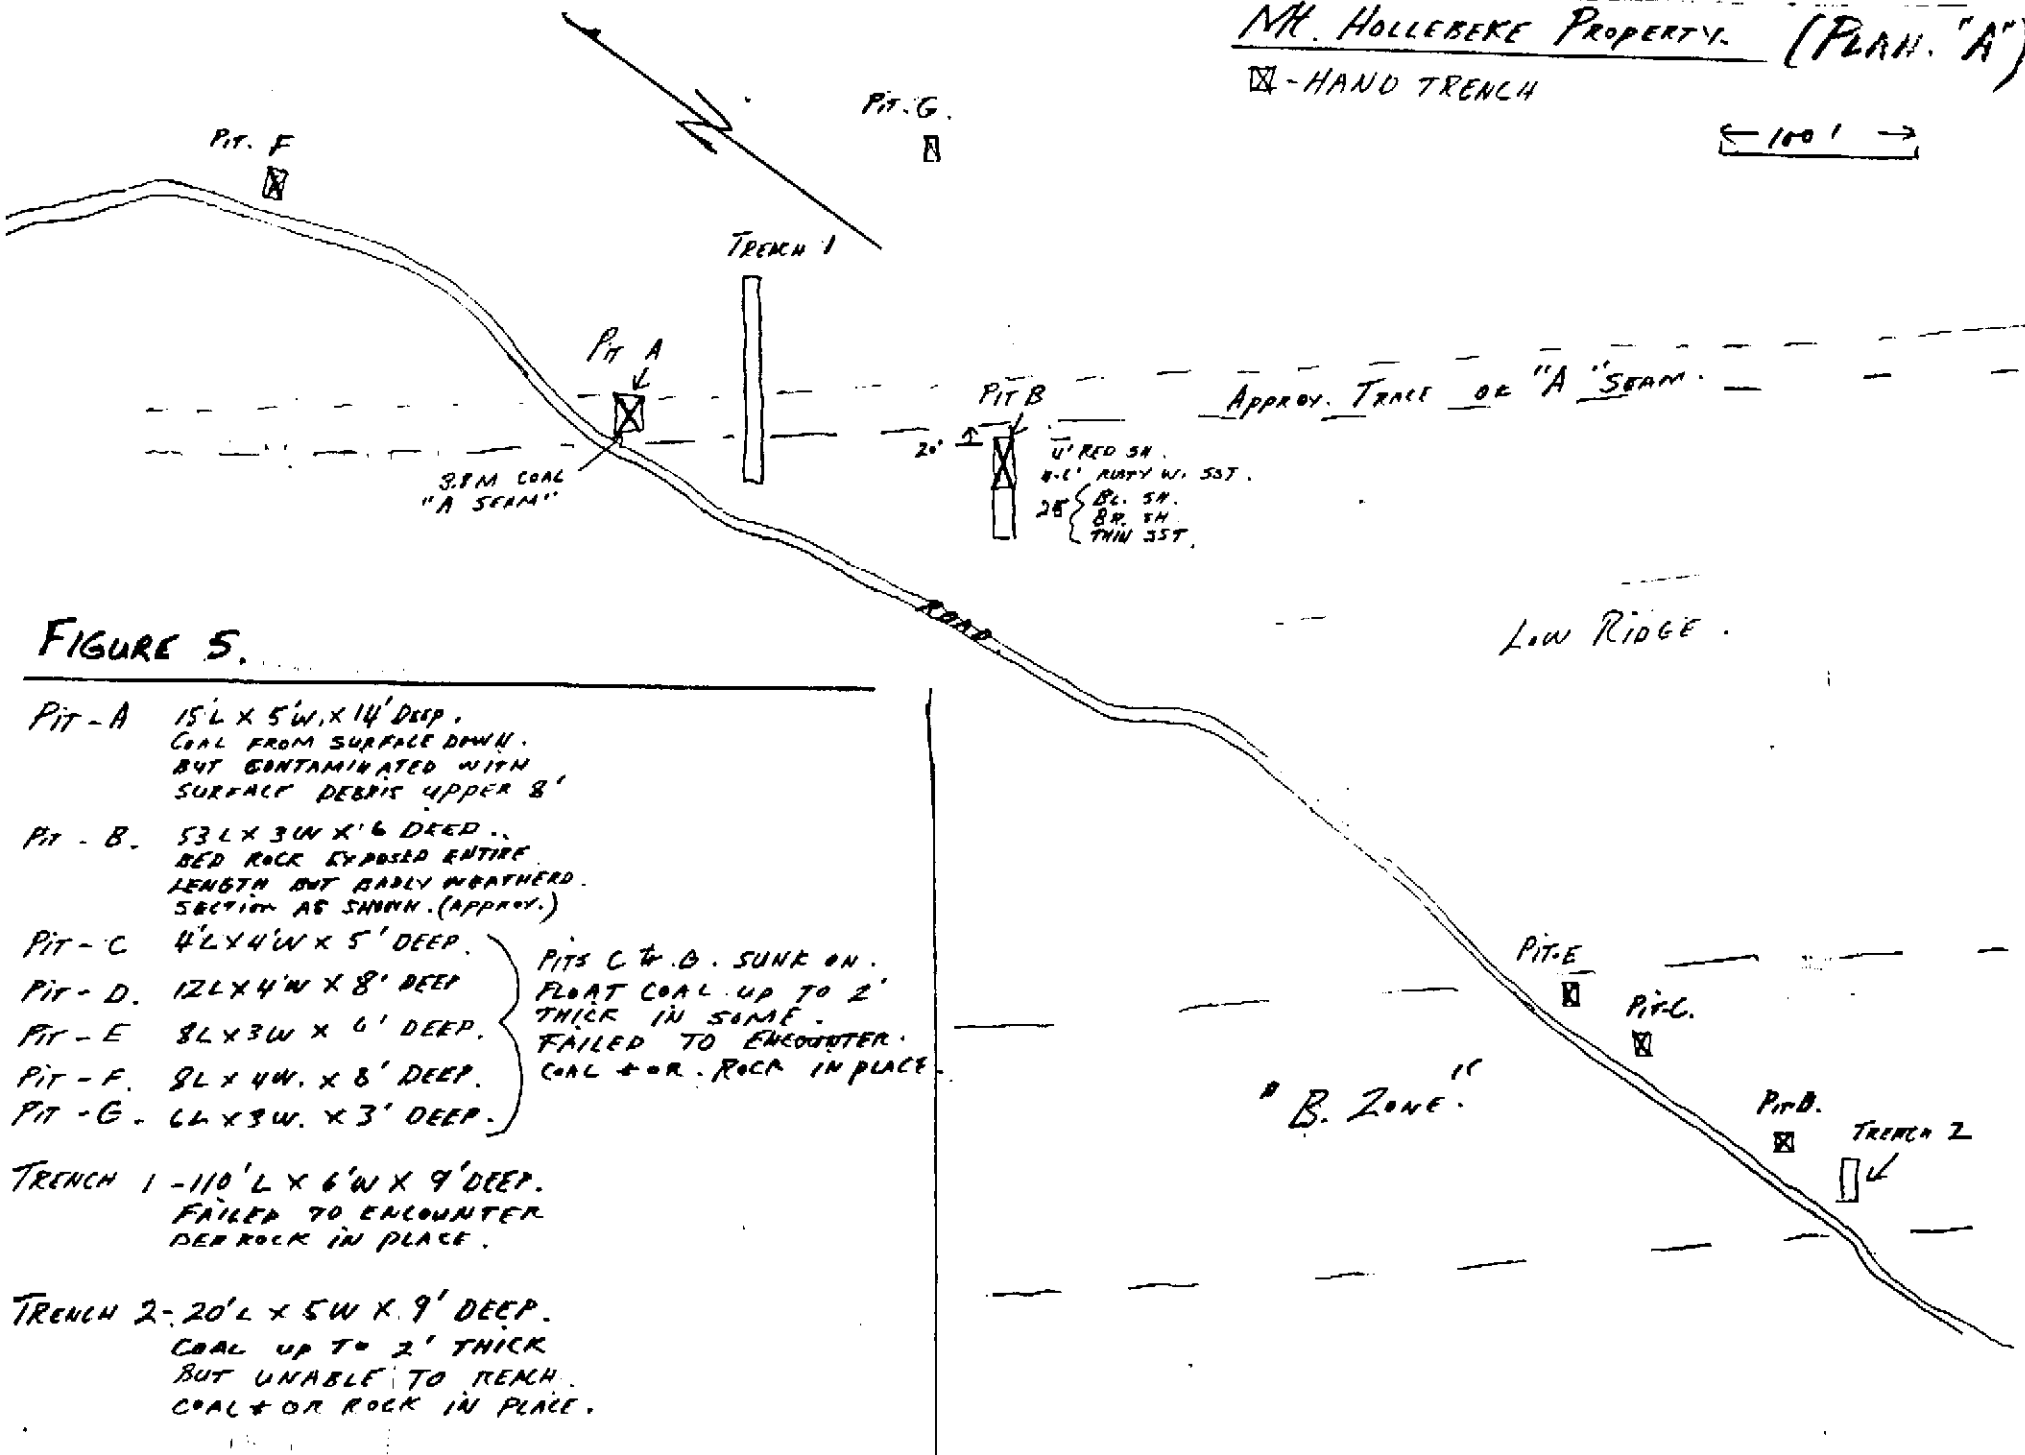 Mt. HOLLEBEKE PROPERTY. (PLAN. "A")
- HAND TRENCH
100'
PIT. G.
PIT. F
TRENCH 1
PIT A
PIT B
APPROX. TRACE OF "A" SEAM.
20'
4' RED SH.
RUSTY W. SST.
BL. SH.
BR. SH
THIN SST.
3.8M COAL
"A SEAM"
ROAD
LOW RIDGE.
FIGURE 5.
PIT - A 15'L X 5'W. X 14' DEEP.
COAL FROM SURFACE DOWN.
BUT CONTAMINATED WITH
SURFACE DEBRIS UPPER 8'
PIT - B. 53 L X 3 W X '6 DEEP..
BED ROCK EXPOSED ENTIRE
LENGTH BUT BADLY WEATHERD.
SECTION AS SHOWN. (APPROX.)
PIT - C 4'L X 4'W X 5' DEEP.
PIT - D. 12 L X 4'W X 8' DEEP
PIT - E 8L X 3W X 6' DEEP.
PIT - F. 8L X 4W. X 8' DEEP.
PIT - G - 6L X 3W. X 3' DEEP.
PITS C to G. SUNK ON.
FLOAT COAL UP TO 2'
THICK IN SOME.
FAILED TO ENCOUNTER.
COAL + OR. ROCK IN PLACE.
TRENCH 1 - 110' L X 6'W X 9' DEEP.
FAILED TO ENCOUNTER
BED ROCK IN PLACE.
TRENCH 2 - 20' L X 5W X 9' DEEP.
COAL UP TO 2' THICK
BUT UNABLE TO REACH.
COAL + OR ROCK IN PLACE.
PIT-E
PIT-C.
"B. ZONE."
PIT-D.
TRENCH 2